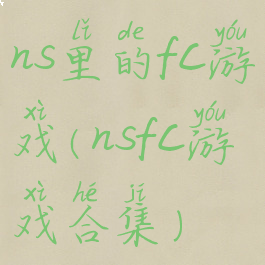 lǐ de yóu
ns里的fc游
xì yóu
戏(nsfc游
xì hé jí
戏合集)